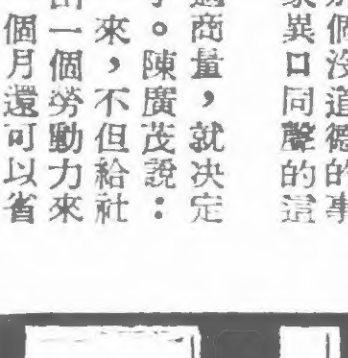 個沒道德的事
家異口同聲的這
商量，就決定
。陳廣茂說：
來，不但給社
一個勞動力來
個月還可以省